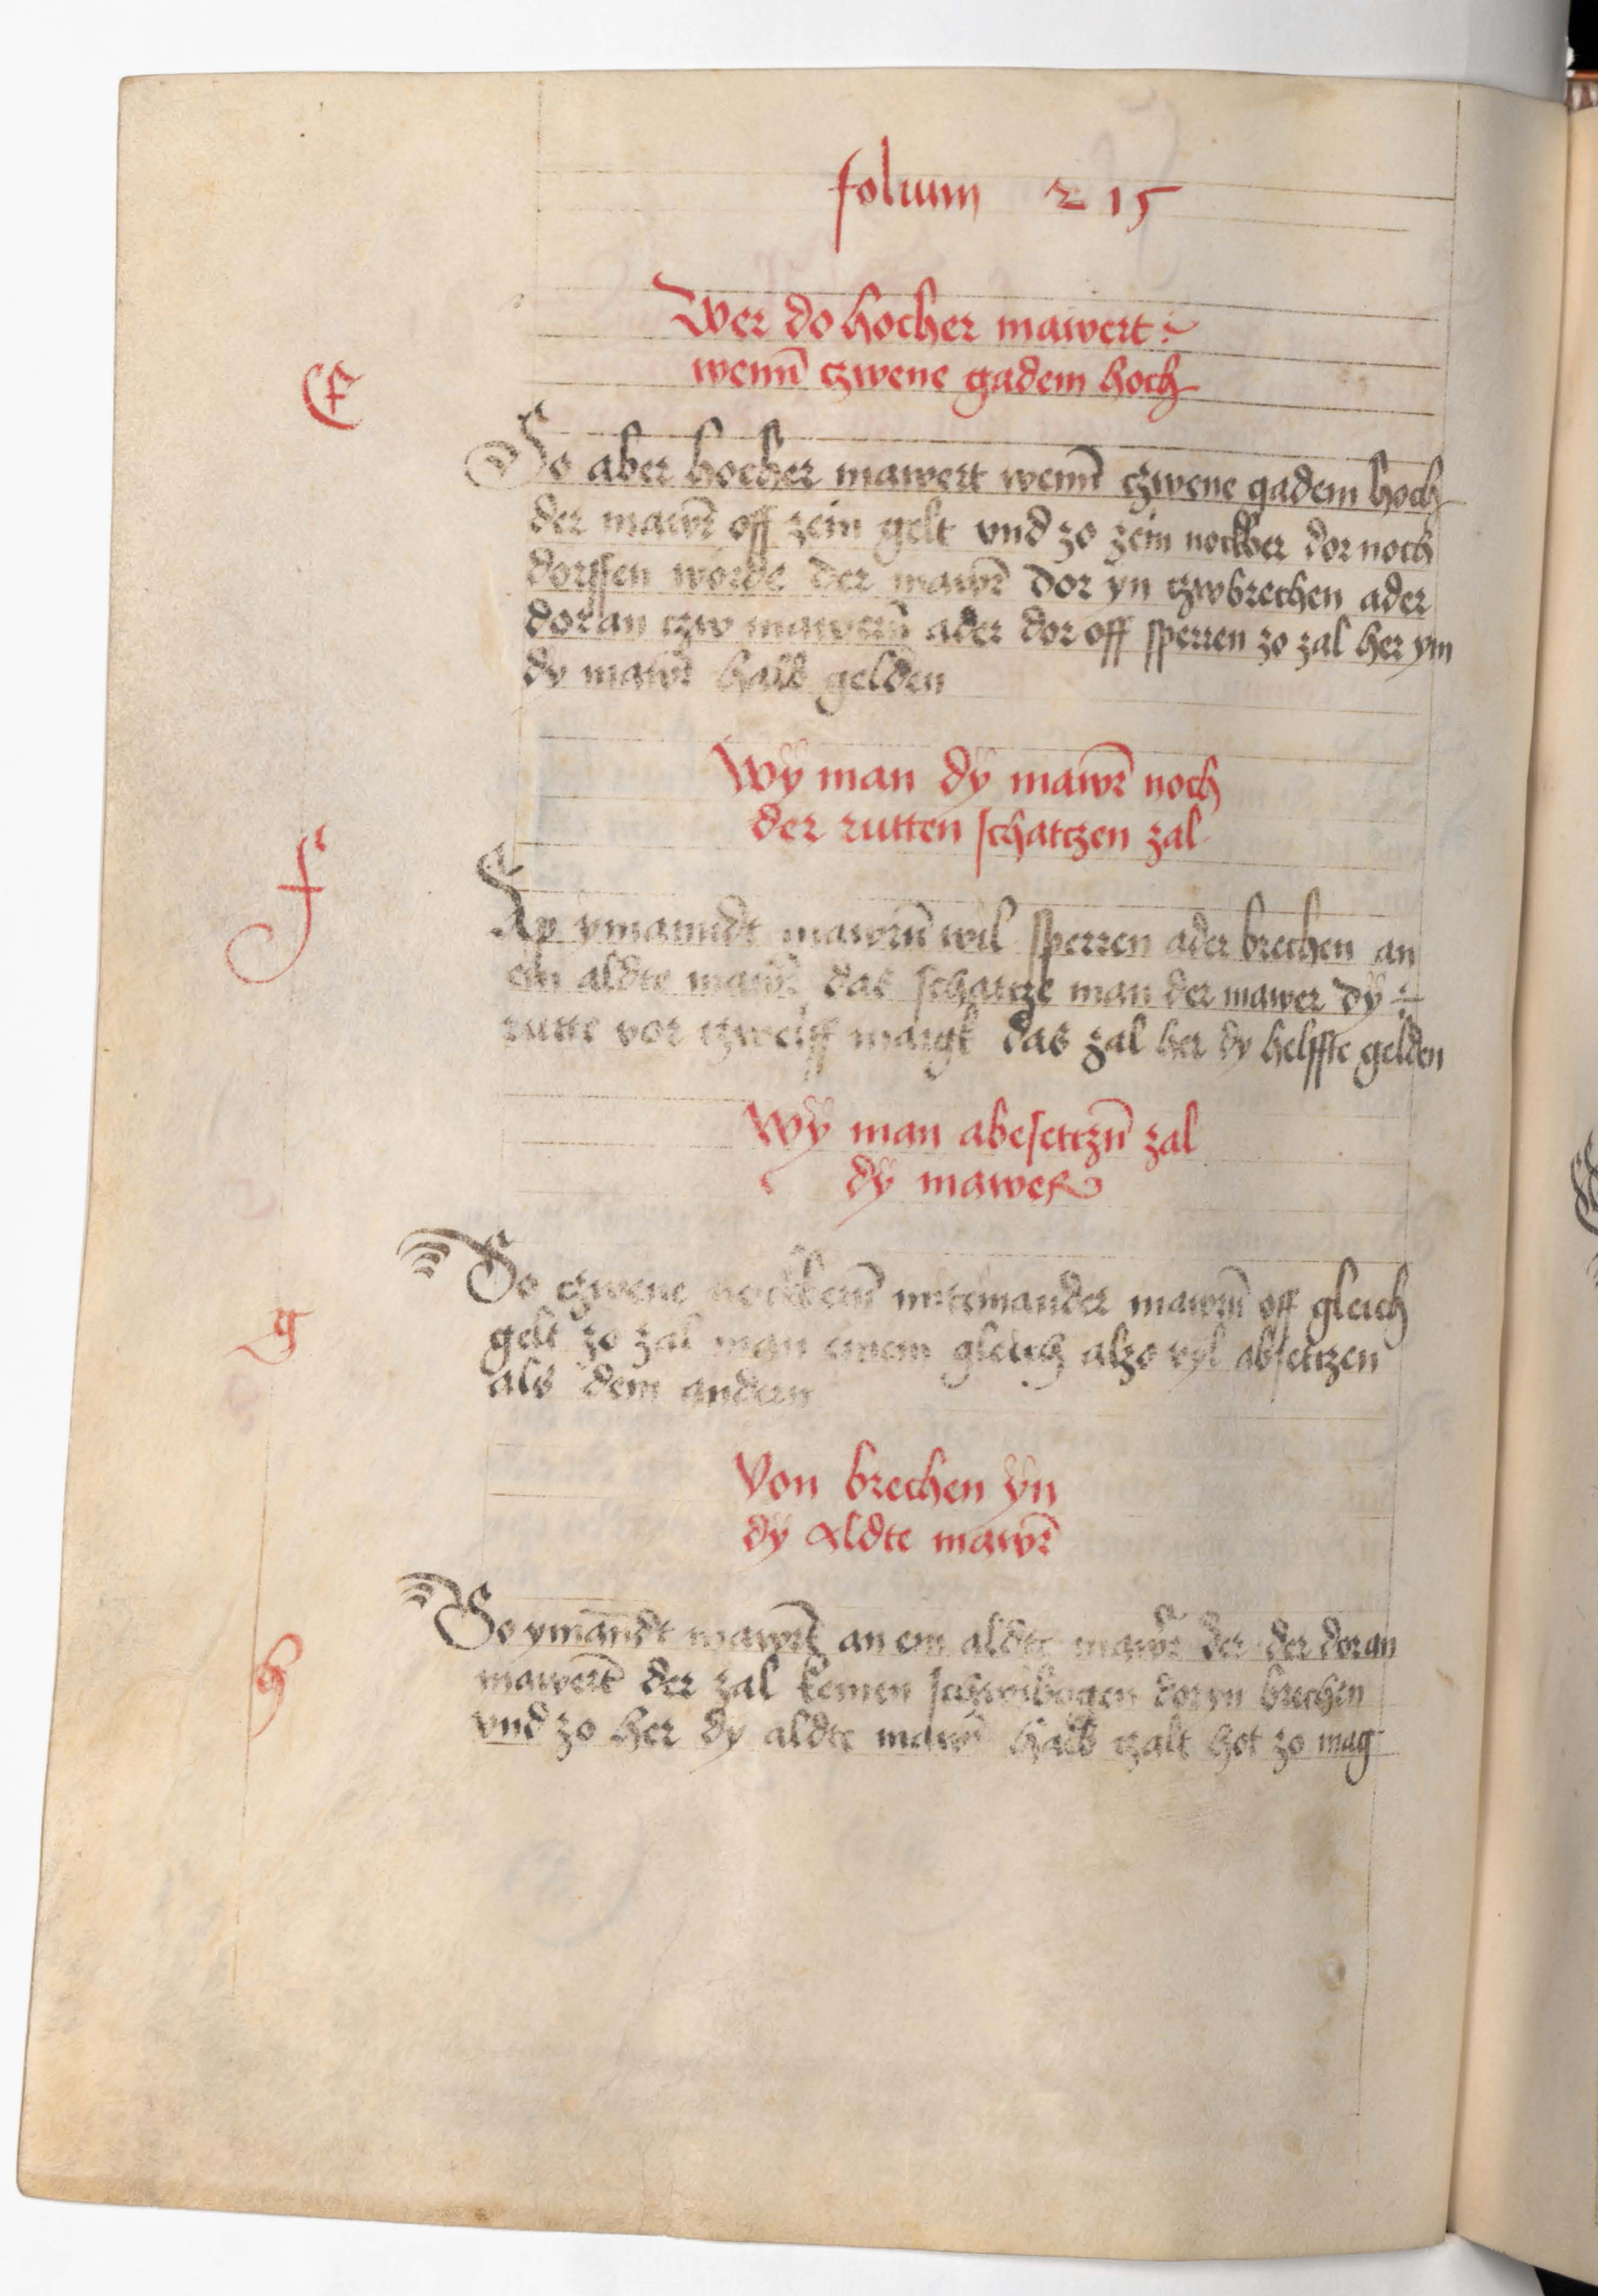 folium 215
Wer do hocher mawert
wenn̄ czwene gadem hoch
E
So aber hocher mawert wenn̄ czwene gadem hoch
der mawr̄ off zein gelt vnd zo zein nockber dor noch
dorffen wörde der mawr̄ dor yn czwbrechen ader
dor an czw mawern̄ ader dor off sperren zo zal her ym
dy mawr̄ halb gelden
Wÿ man dÿ mawr̄ noch
der rutten schatczen zal
F
ymanndt mawrn̄ wil sperren ader brechen an
ein aldte mawr̄ das schatcze man der mawer dÿ
rutte vor czwelff margk das zal her dy helffte gelden
Wÿ man abesettczn̄ zal
dÿ mawer
g
So czwene nockbern̄ miteinander mawrn̄ off gleich
gelt zo zal man einem gleich alzo vyl absettczen
als dem andern
Von brechen ÿn
dÿ aldte mawr̄
h
So ymandt mawrt̄ an ein aldte mawr̄ der der dor an
mawert̄ der zal keinen schwibogen dor yn brechen
vnd zo her dy aldte mawr̄ halb czalt hot zo mag